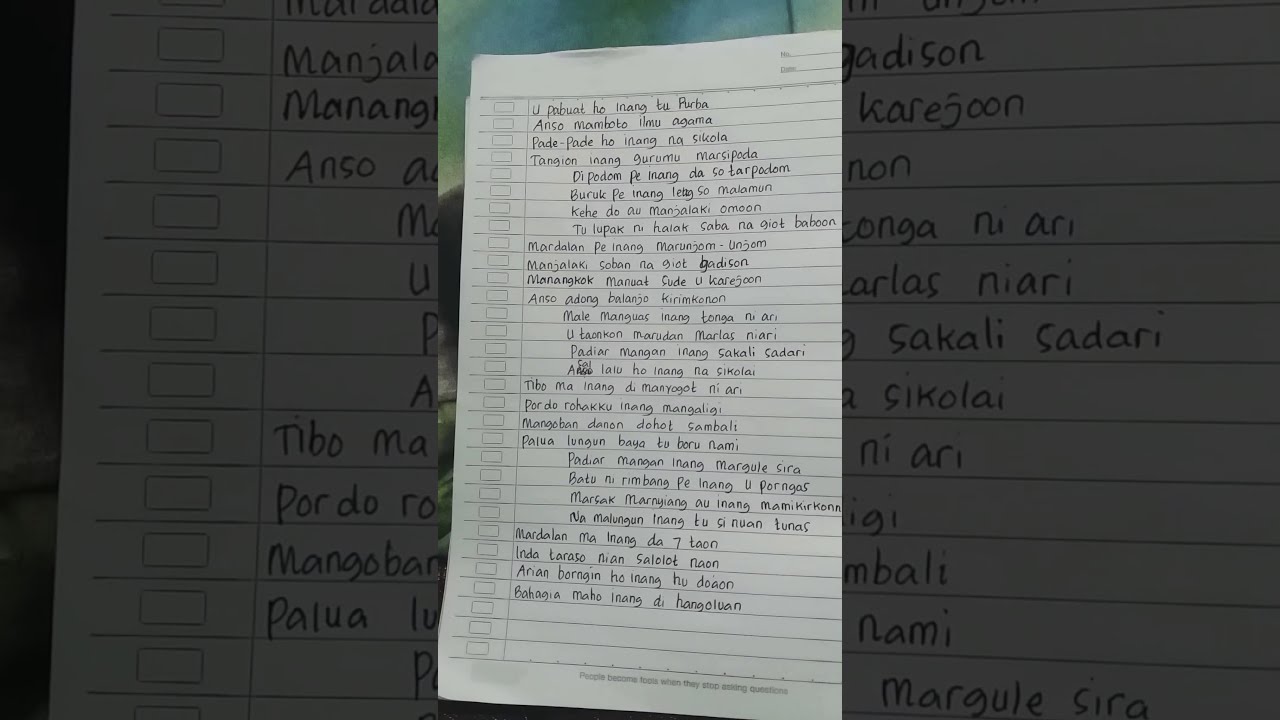 No.
Date
U pabuat ho inang tu Purba
Anso mamboto ilmu agama
Pade-Pade ho inang na sikola
Tangion inang gurumu marsipoda
Di podom pe inang da so tarpodom
Buruk pe inang leng so malamun
Kehe do au manjalaki omoon
Tu lupak ni halak saba na giot baboon
Mardalan pe inang marunjom-unjom
Manjalaki soban na giot gadison
Manangkok manuat sude u karejoon
Anso adong balanjo kirimkonon
Male manguas inang tonga ni ari
U taonkon marudan marlas niari
Padiar mangan inang sakali sadari
Asal lalu ho inang na sikolai
Tibo ma inang di manyogot ni ari
Pordo rohakku inang mangaligi
Mangoban danon dohot sambali
Palua lungun baya tu boru nami
Padiar mangan inang margule sira
Batu ni rimbang pe inang u porngas
Marsak marnyiang au inang mamikirkonn
Na malungun inang tu si nuan tunas
Mardalan ma inang da 7 taon
Inda taraso nian salolot naon
Arian borngin ho inang hu doaon
Bahagia maho inang di hangoluan
People become fools when they stop asking questions